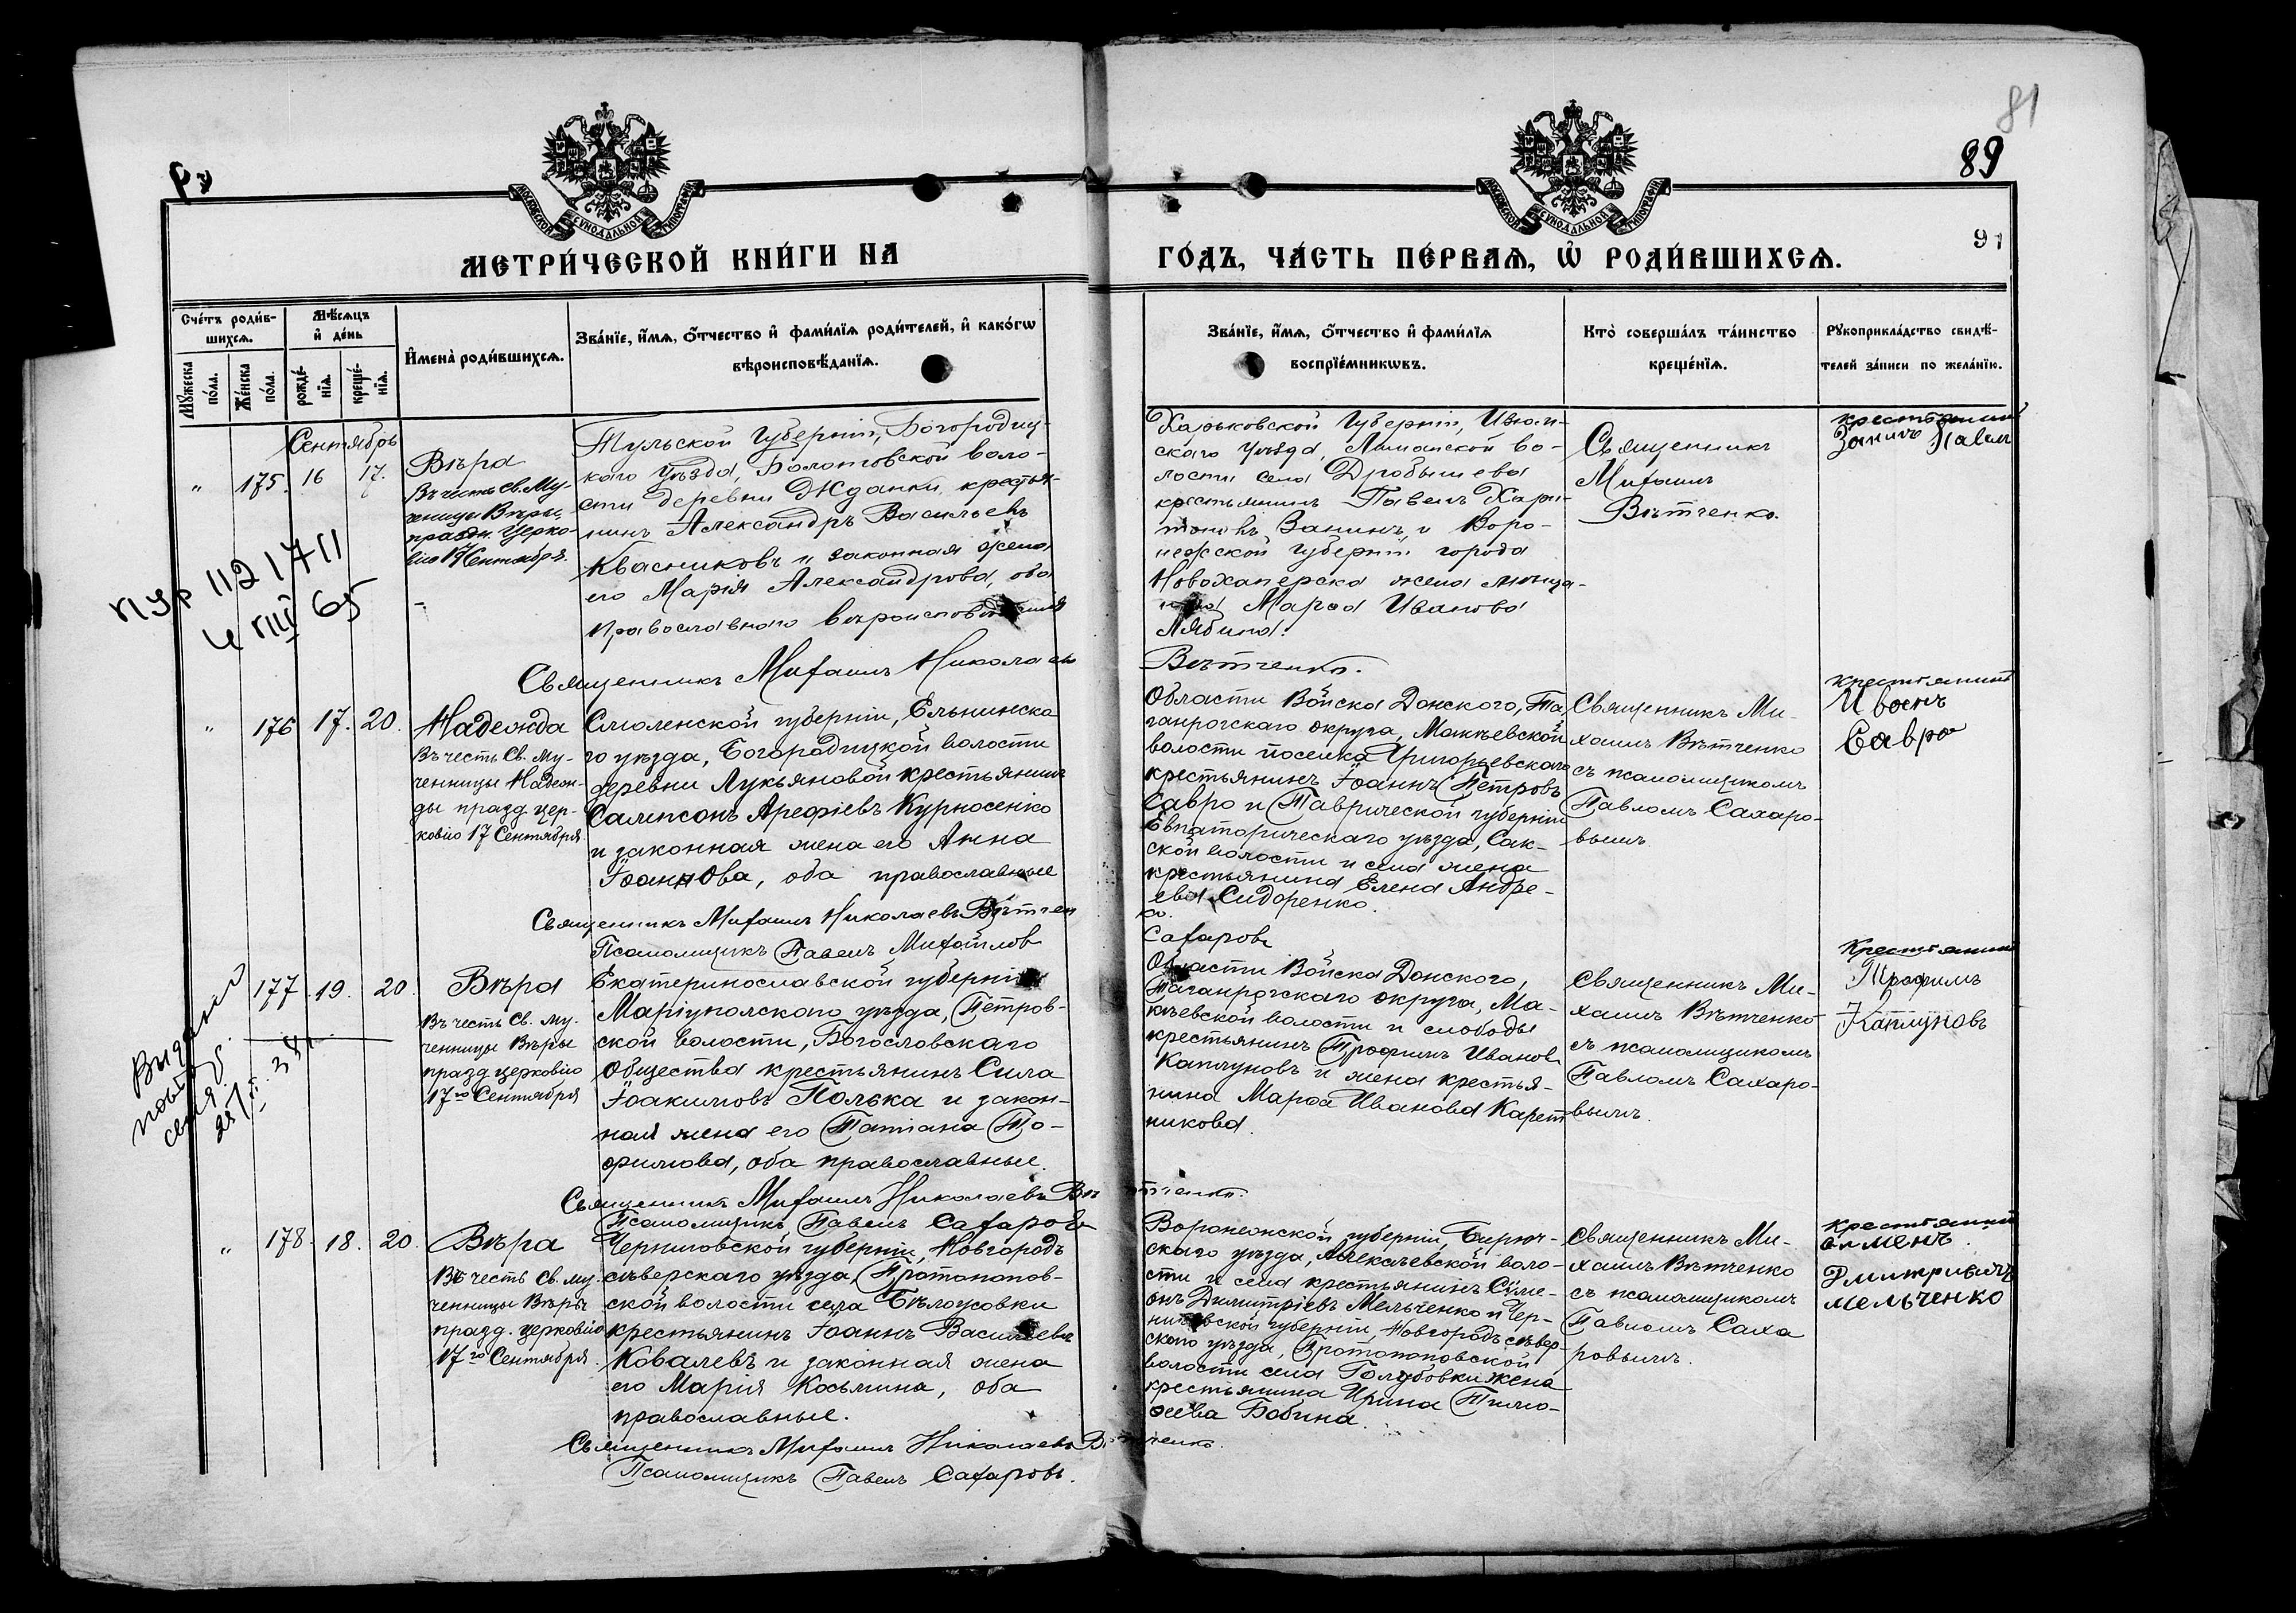 81
89
91
МОСКОВСКОЙ СѴНОДАЛЬНОЙ ТИПОГРАФІИ
МОСКОВСКОЙ СѴНОДАЛЬНОЙ ТИПОГРАФІИ
МЕТРИ́ЧЕСКОЙ КНИ́ГИ НА
ГО́ДЪ, ЧА́СТЬ ПЕ́РВАѦ, Ѡ҆ РОДИ́ВШИХСѦ.
Сче́тъ роди́в-
шихсѧ.
Мѣ́сѧцъ
и҆ де́нь
И҆мена̀ роди́вшихсѧ.
Зва́нїе, и҆́мѧ, ѻ҆́тчество и҆ фами́лїѧ роди́телей, и҆ како́гѡ
вѣроисповѣ́данїѧ.
Мꙋ́жеска
по́ла.
Же́нска
по́ла.
рожде́-
нїѧ.
креще́-
нїѧ.
Зва́нїе, и҆́мѧ, ѻ҆́тчество и҆ фами́лїѧ
воспрїе́мникѡвъ.
Кто̀ соверша́лъ та́инство
креще́нїѧ.
Рꙋкоприкла́дство свидѣ́-
телей за́писи по жела́нїю.
Сентябрь
" 175. 16 17.
Вѣра
Въ честь Св. Му-
ченицы Вѣры,
праздн. Церко-
вію 17 Сентября.
Тульской Губерніи, Богородиц-
каго Уѣзда, воло-
сти деревни Жданки, крестья-
нинъ Александръ Васильевъ
Квасниковъ и законная жена
его Марія Александрова, оба
православнаго вѣроисповѣданія
Священникъ Михаилъ Николаевъ
Харьковской Губерніи, Изюм-
скаго Уѣзда, Лиманской во-
лости села Дробышева
крестьянинъ Павелъ Хари-
тоновъ Занинъ, и Воро-
нежской Губерніи города
Новохаперска жена мѣща-
нина Марѳа Иванова
Лябина.
Вѣтченко.
Священникъ
Михаилъ
Вѣтченко.
крестьянинъ
Занинъ Павелъ
112 1711
4 VIII 65
" 176 17. 20.
Надежда
Въ честь Св. Му-
ченницы Надеж-
ды празд. цер-
ковію 17 Сентября
Смоленской губерніи, Ельнинска
го уѣзда, Богородицкой волости
деревни Лукьяновой крестьянинъ
Сампсонъ Арефіевъ Курносенко
и законная жена его Анна
Іоаннова, оба православные
Священникъ Михаилъ Николаевъ Вѣтчен
Псаломщикъ Павелъ Михайлов
Области Войска Донского, Та
ганрогскаго округа, Макѣевской
волости поселка Григорьевскаго
крестьянинъ Іоаннъ Петровъ
Савро и Таврической губерніи
Евпаторическаго уѣзда, Сак-
ской волости и села жена
крестьянина Елена Андре-
ева Сидоренко.
ко.
Сахаровъ
Священникъ Ми-
хаилъ Вѣтченко
съ псаломщикомъ
Павломъ Сахаро-
вымъ
крестьянинъ
Иванъ
Савро
177 19. 20
Вѣра
Въ честь Св. Му-
ченницы Вѣры
празд церковію
17го Сентября
Екатеринославской губерніи
Маріупольскаго уѣзда, Петров-
ской волости, Богословскаго
общества крестьянинъ Сила
Іоакимовъ Полька и закон-
ная жена его Татіана Тро-
фимова, оба православные.
Священникъ Михаилъ Николаевъ Вѣ
Псаломщикъ Павелъ Сахаровъ
Области Войска Донского,
Таганрогскаго округа, Ма-
кѣевской волости и слободы
крестьянинъ Трофимъ Иванов
Каплуновъ и жена крестья-
нина Марѳа Иванова Карет
никова.
тченко.
Священникъ Ми-
хаилъ Вѣтченко
съ псаломщикомъ
Павломъ Сахаро-
вымъ.
Крестьянинъ
Трофимъ
Каплуновъ
Выданий
" 178. 18. 20.
Вѣра
Въ честь Св. му-
ченницы Вѣры
празд. церковію
17го Сентября.
Черниговской губерніи, Новгородъ
сѣверскаго уѣзда, Протопопов-
ской волости села Бѣлоусовки
крестьянинъ Іоаннъ Васильевъ
Ковалевъ и законная жена
его Марія Косьмина, оба
православные.
Священникъ Михаилъ Николаевъ Вѣ
Псаломщикъ Павелъ Сахаровъ.
Воронежской губерніи, Бирюч-
скаго уѣзда, Алексѣевской воло-
сти и села крестьянинъ Сѵме-
онъ Димитріевъ Мельченко и Чер-
ниговской губерніи, Новгородъ сѣвер-
скаго уѣзда, Протопоповской
волости села Голубовки жена
крестьянина Ирина Тимо-
ѳеева Бобина.
тченко.
Священникъ Ми-
хаилъ Вѣтченко
съ псаломщикомъ
Павломъ Саха
ровымъ.
крестьянинъ
Дмитриевичъ
мельченко